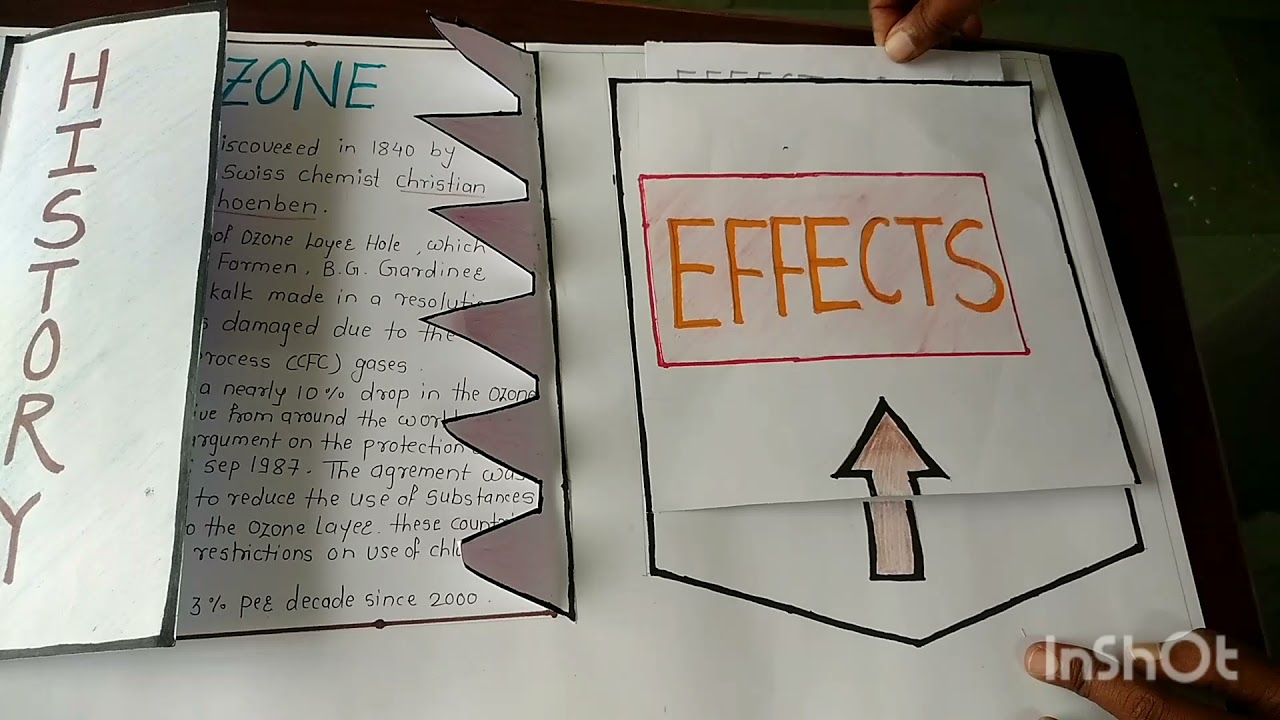 HISTORY
ZONE
iscovered in 1840 by
Swiss chemist Christian
hoenben.
of Ozone Layer Hole, which
Farmen, B.G. Gardiner
kalk made in a
damaged due to the
rocess (CFC) gases.
a nearly 10% drop in the Ozone
ive from around the
rgument on the protection
sep 1987. The agrement was
to reduce the use of substances
o the Ozone Layer. these
restrictions on use of
3% per decade since 2000.
EFFECTS
InShOt